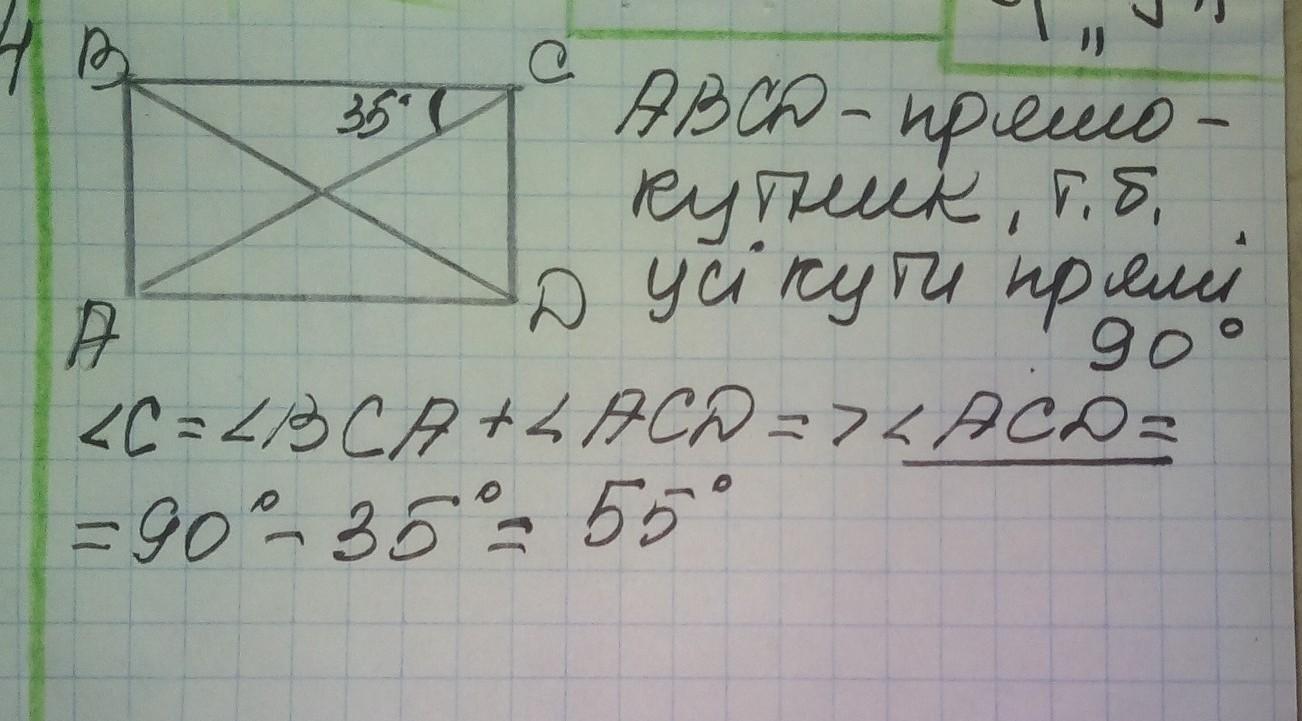 B
C
35°
ABCD - прямо-
кутник, т.б.
усі кути прямі
90°
A
D
<C = <BCA + <ACD => <ACD =
= 90° - 35° = 55°